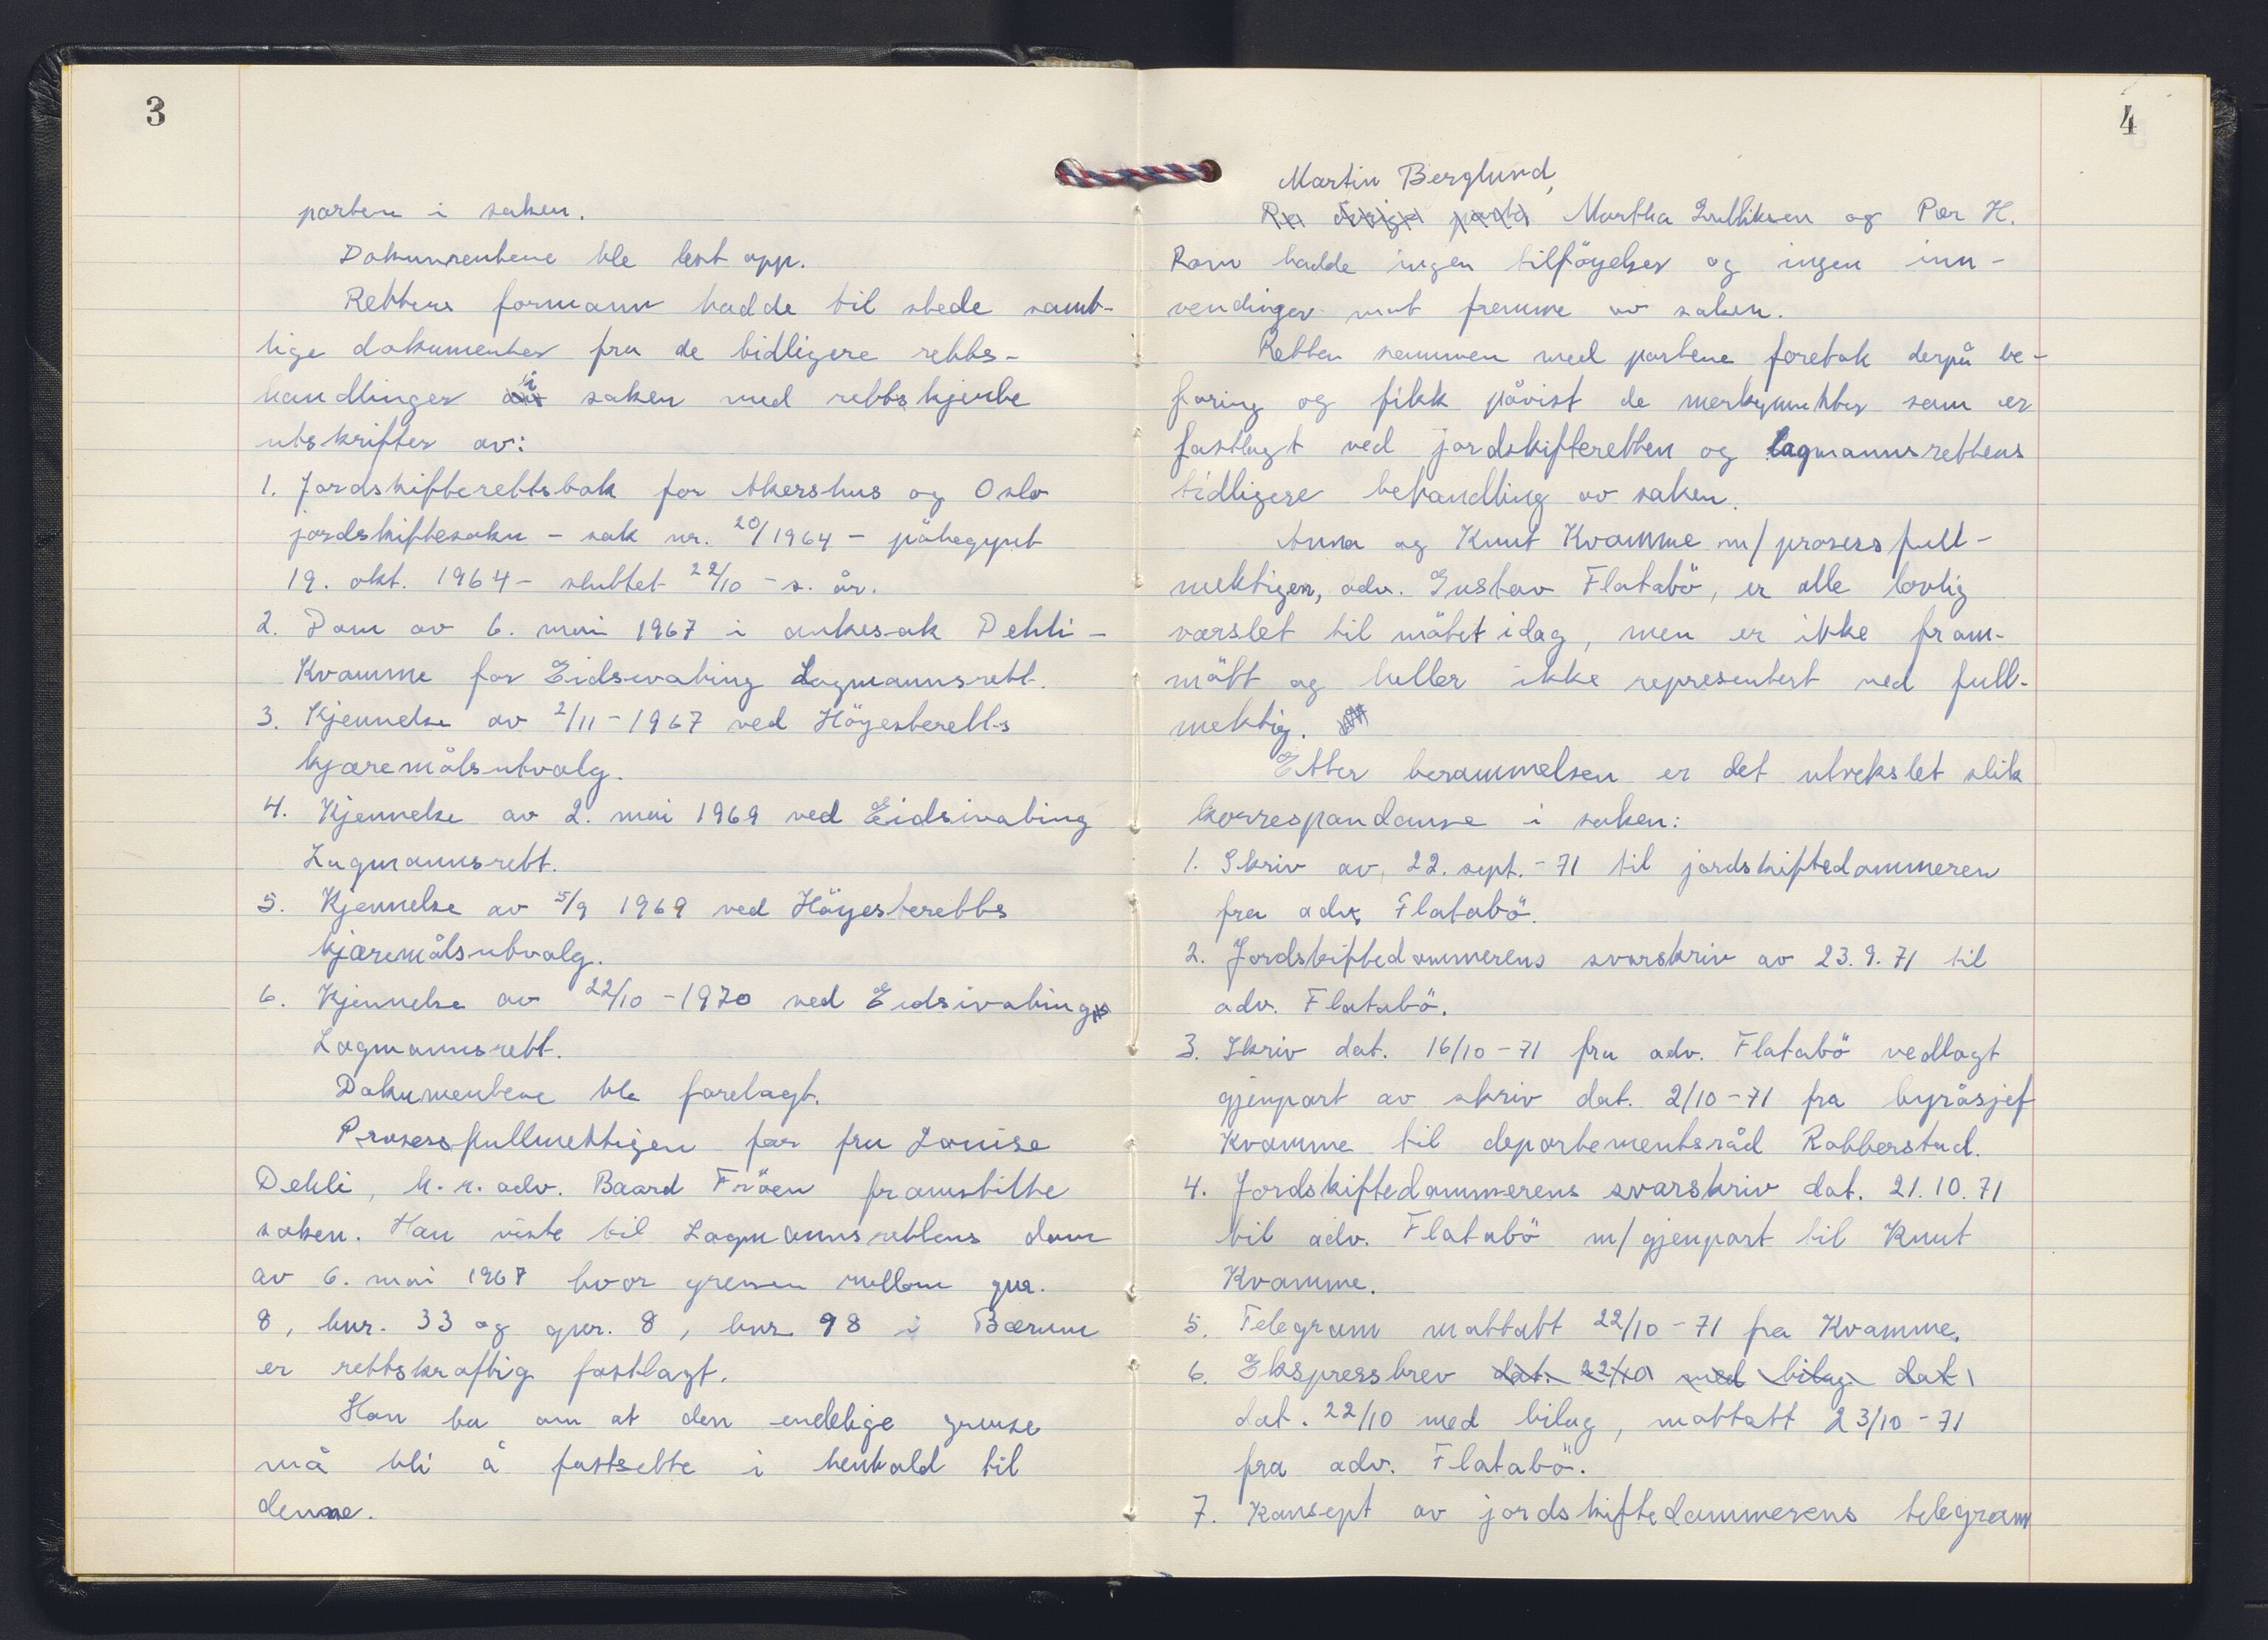 3
parten i saken.
Dokumentene ble lest opp.
Rettens formann hadde til stede samt-
lige dokumenter fra de tidligere retts-
handlinger i saken med rettskjente
utskrifter av:
1. Jordskifterettsbok for Akershus og Oslo
jordskiftesokn - sak nr. 20/1964 - påbegynt
19. okt. 1964 - sluttet 22/10 - s. år.
2. Dom av 6. mai 1967 i ankesak Dehli -
Kvamme for Eidsivating Lagmannsrett.
3. Kjennelse av 2/11 - 1967 ved Höyesteretts
kjæremålsutvalg.
4. Kjennelse av 2. mai 1969 ved Eidsivating
Lagmannsrett.
5. Kjennelse av 5/9 1969 ved Höyesteretts
kjæremålsutvalg.
6. Kjennelse av 22/10 - 1970 ved Eidsivating
Lagmannsrett.
Dokumentene ble forelagt.
Prosessfullmektigen for fru Louise
Dehli, h.r.adv. Baard Fröen framstilte
saken. Han viste til Lagmannsrettens dom
av 6. mai 1967 hvor grensen mellom gnr.
8, bnr. 33 og gnr. 8, bnr 98 i Bærum
er rettskraftig fastlagt.
Han ba om at den endelige grense
må bli å fastsette i henhold til
denne.
4
Martin Berglund,
Martha Gulliksen og Per H.
Ram hadde ingen tilföyelser og ingen inn-
vendinger mot fremme av saken.
Retten sammen med partene foretok derpå be-
faring og fikk påvist de merkepunkter som er
fastlagt ved jordskifteretten og lagmannsrettens
tidligere behandling av saken.
Anna og Knut Kvamme m/prosessfull-
mektigen, adv. Gustav Flatabö, er alle lovlig
varslet til mötet idag, men er ikke fram-
mött og heller ikke representert ved full-
mektig.
Etter berammelsen er det utvekslet slik
korrespondanse i saken:
1. Skriv av 22. sept. - 71 til jordskiftedommeren
fra adv. Flatabö.
2. Jordskiftedommerens svarskriv av 23.9.71 til
adv. Flatabö.
3. Skriv dat. 16/10 - 71 fra adv. Flatabö vedlagt
gjenpart av skriv dat. 2/10 - 71 fra byråsjef
Kvamme til departementsråd Robberstad.
4. Jordskiftedommerens svarskriv dat. 21.10.71
til adv. Flatabö m/gjenpart til Knut
Kvamme.
5. Telegram mottatt 22/10 - 71 fra Kvamme.
6. Ekspressbrev dat. 22/10 med bilag dat
dat. 22/10 med bilag, mottatt 23/10 - 71
fra adv. Flatabö.
7. Konsept av jordskiftedommerens telegram